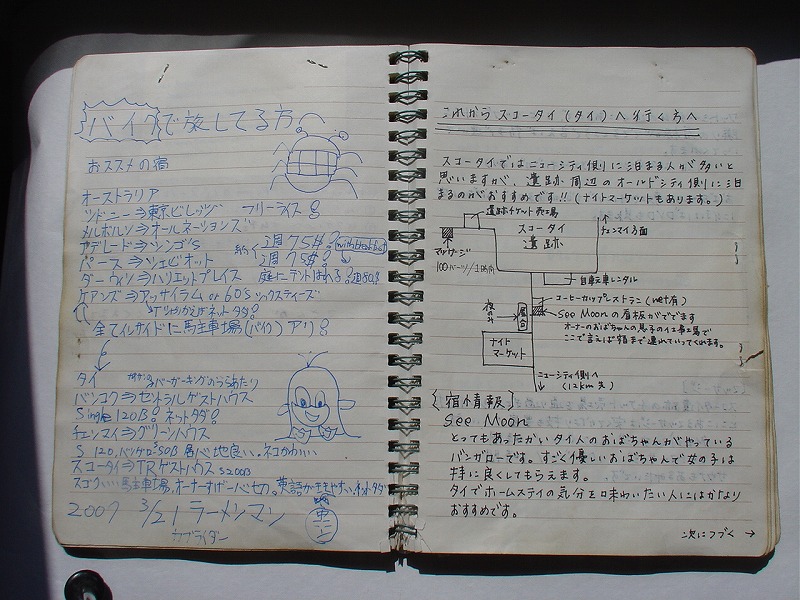 バイクで旅してる方
おススメの宿
オーストラリア
シドニー⇒東京ビレッジ フリーライス
メルボルン⇒オールネーションズ
アデレード⇒シンゴ's 1週75$ (with breakfast)
パース⇒シェビオット 1週75$
ダーウィン⇒ハリエットプレイス 庭にテントはれる
ケアンズ⇒アッサイラム or 60's シックスティーズ
全てイルサイドに駐車場(バイク)アリ
タイ
バーガーキングのうらあたり
バンコク⇒セントラルゲストハウス
Single 120B! ネットタダ!
チェンマイ⇒グリーンハウス
S 120, バンガロー50B 居心地良い。ネコかわいい
スコータイ⇒TRゲストハウス S200B
スゴクいい駐車場。オーナーすげー親切。英語がききやすい。ネットタダ
2007 3/21 ラーメンマン
カブライダー
これから スコータイ(タイ)へ行く方へ
スコータイではニューシティ側に泊まる人が多いと
思いますが、遺跡周辺のオールドシティ側に泊
まるのがおすすめです!!(ナイトマーケットもあります。)
遺跡チケット売場
スコータイ
遺跡
チェンマイ方面
マッサージ
100バーツ/1時間
自転車レンタル
コーヒーカップレストラン(net有)
See Moonの看板がでてます
オーナーのおばちゃんの息子の仕事場で
ここで言えば宿まで連れていってくれます。
夜のみ
屋台
ナイト
マーケット
ニューシティ側へ
(12km先)
〔宿情報〕
See Moon
とってもあったかいタイ人のおばちゃんがやっている
バンガローです。すごく優しいおばちゃんで女の子は
特に良くしてもらえます。
タイでホームステイの気分を味わいたい人にはかなり
おすすめです。
次につづく →